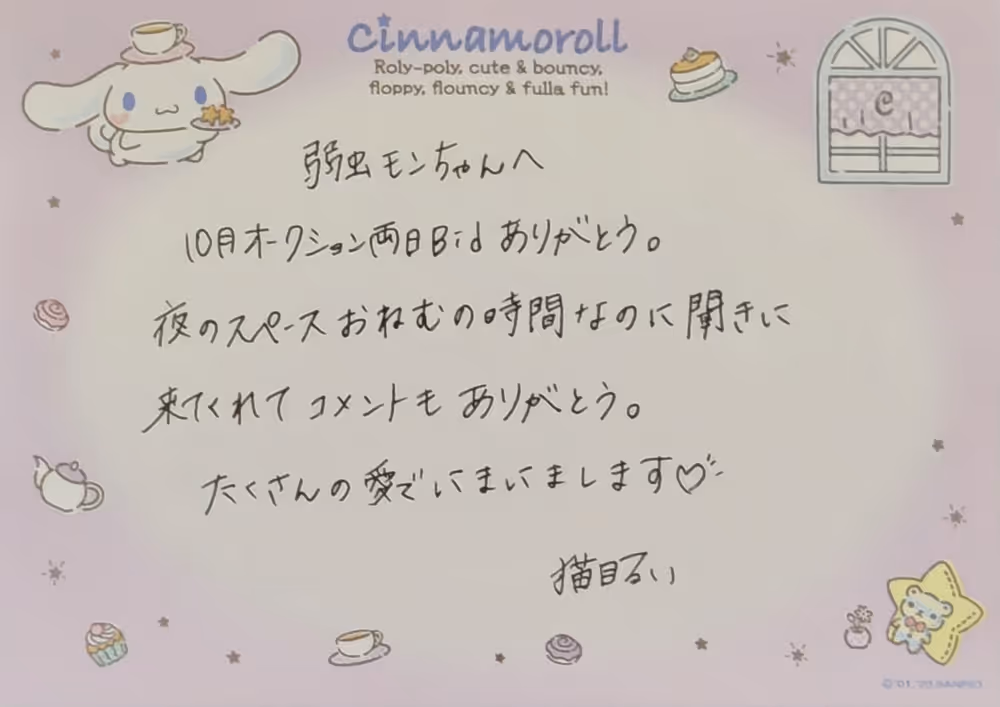 cinnamoroll
Roly-poly, cute & bouncy,
floppy, flouncy & fulla fun!
C
弱虫モンちゃんへ
10月オークション両日Bid ありがとう。
夜のスペースおねむの時間なのに聞きに
来てくれて コメントも ありがとう。
たくさんの愛でにまにまします♡
猫目るい
© '01, '23 SANRIO